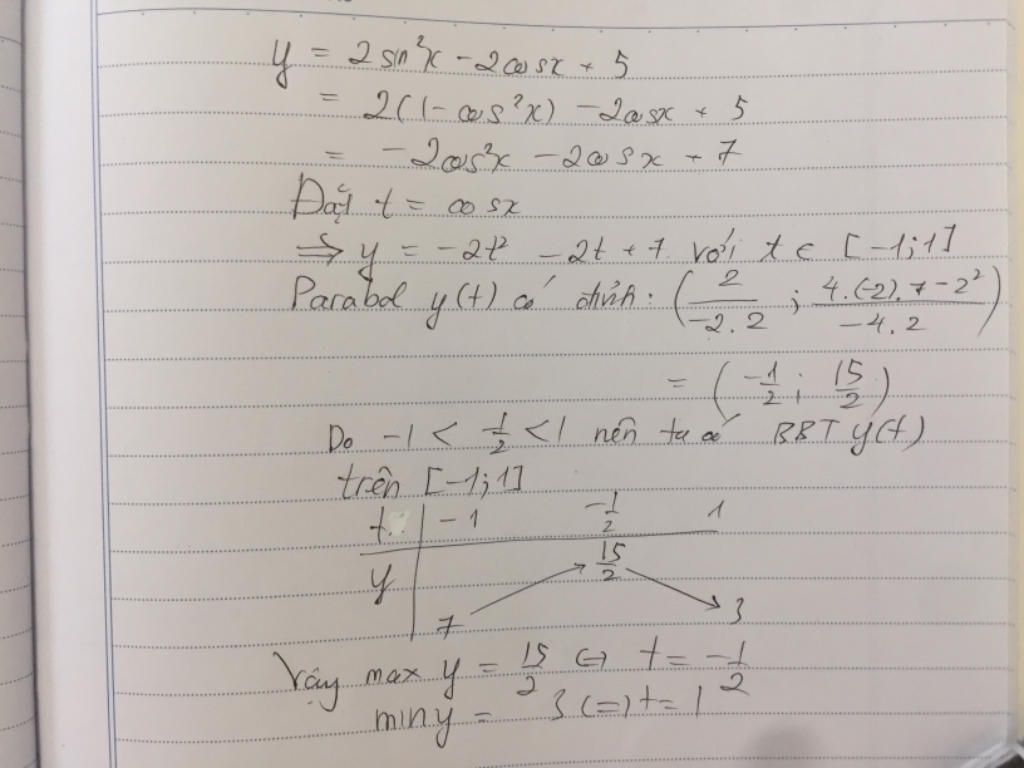 y = 2 sin²x - 2cosx + 5
= 2(1 - cos²x) - 2cosx + 5
= -2cos²x - 2cosx + 7
Đặt t = cosx
=> y = -2t² - 2t + 7 với t ∈ [-1;1]
Parabol y(t) có đỉnh: (2/(-2.2) ; (4.(-2).7-2²)/(-4.2))
= (-1/2 ; 15/2)
Do -1 < -1/2 < 1 nên ta có BBT y(t)
trên [-1;1]
t -1 -1/2 1
y 7 ↗ 15/2 ↘ 3
Vậy max y = 15/2 <=> t = -1/2
min y = 3 <=> t = 1